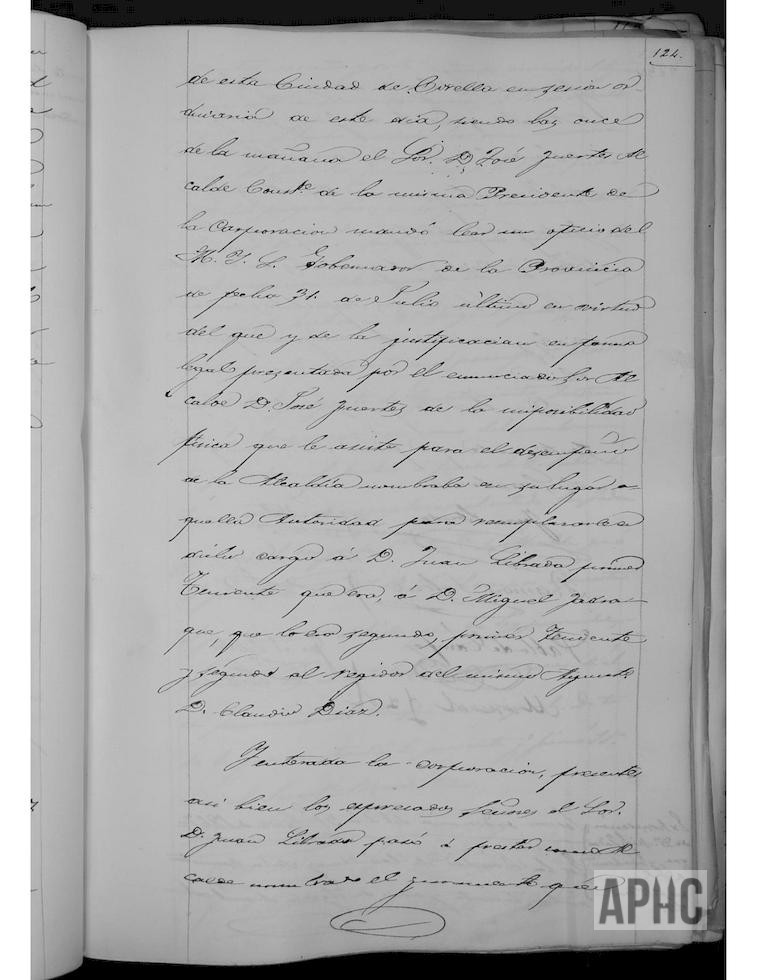 124.
de esta Ciudad de Corella en sesion or-
dinaria de este dia, siendo las once
de la mañana el Sor. D. José Fuertes Al
calde Const.e de la misma Presidente de
la Corporacion mandó leer un oficio del
M. Y. S. Gobernador de la Provincia
de fecha 31. de Julio último en virtud
del que y de la justificacion en forma
legal presentada por el enunciado Sor Al
calde D. José Fuertes de la imposibilidad
fisica que le asiste para el desempeño
de la Alcaldía nombraba en su lugar a-
quella Autoridad para remplazarle a
dicho cargo á D. Juan Librada primer
Teniente que era, á D. Miguel
que, que lo era segundo, primer Teniente
y segundo al regidor del mismo Ayunt.
D. Claudio Diaz.
Y enterada la corporacion, presentes
asi bien los espresados Señores el Sor.
D. Juan Librada pasó á prestar como Al
calde nombrado el juramento que
APHC